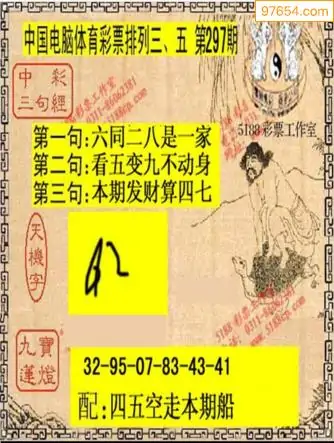 97654.com
中国电脑体育彩票排列三、五 第297期
中彩
三句經
0311-86062381
5188彩票工作室
第一句:六同二八是一家
第二句:看五变九不动身
第三句:本期发财算四七
天機字
5188 彩票工作室
九寶
蓮燈
32-95-07-83-43-41
配:四五空走本期船